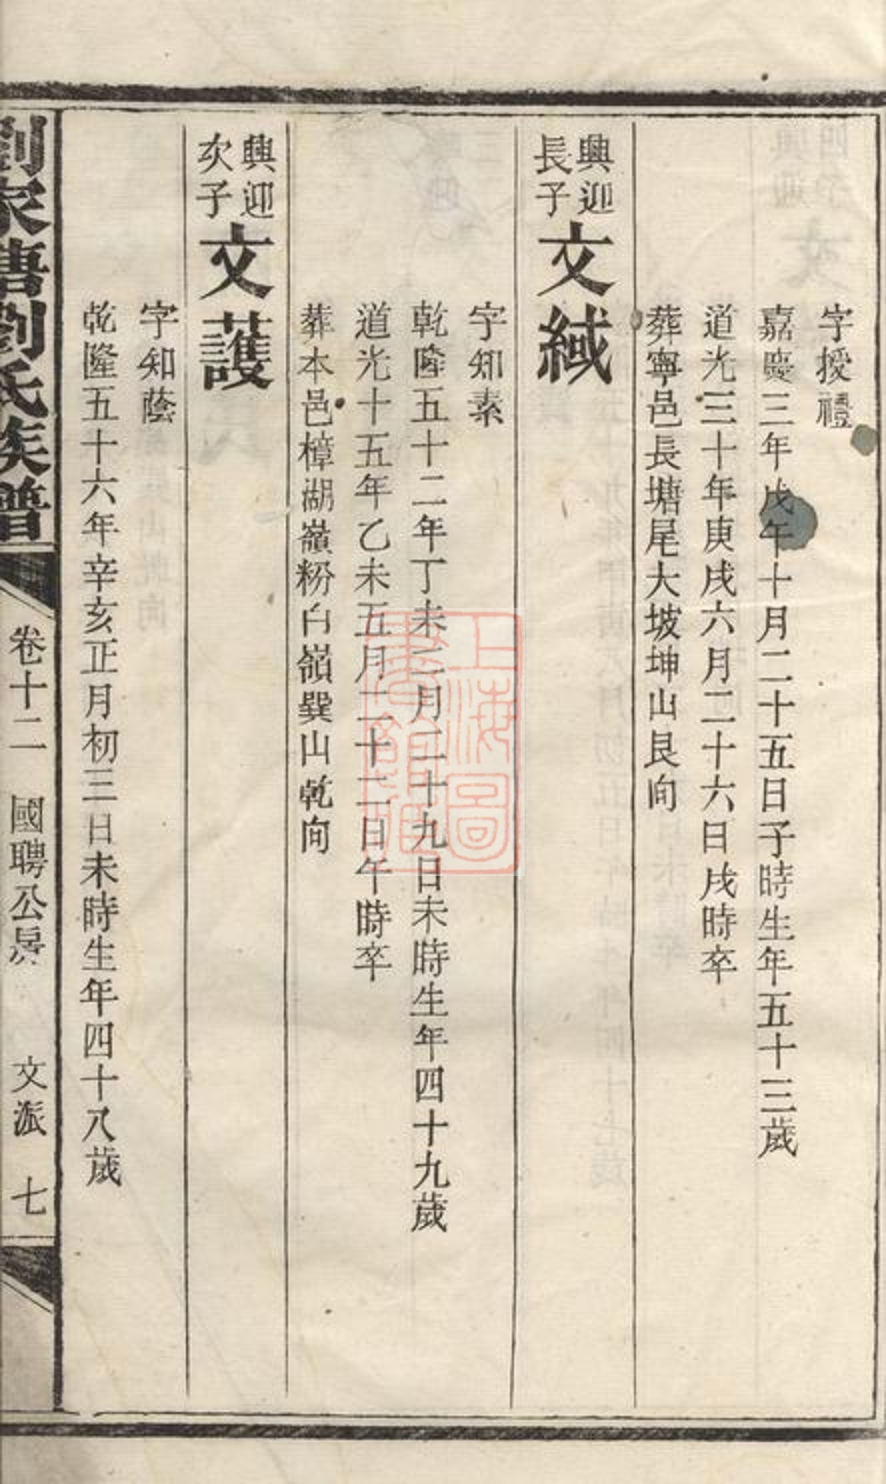 字授禮
嘉慶三年戊午十月二十五日子時生年五十三歲
道光三十年庚戌六月二十六日戌時卒
葬寧邑長塘尾大坡坤山艮向
興迎
長子
文緎
字知素
乾隆五十二年丁未三月二十九日未時生年四十九歲
道光十五年乙未五月二十二日午時卒
葬本邑樟湖嶺粉白嶺巽山乾向
興迎
次子
文護
字知蔭
乾隆五十六年辛亥正月初三日未時生年四十八歲
劉家塘劉氏族譜
卷十二 國聘公房 文派 七
上海圖書館藏